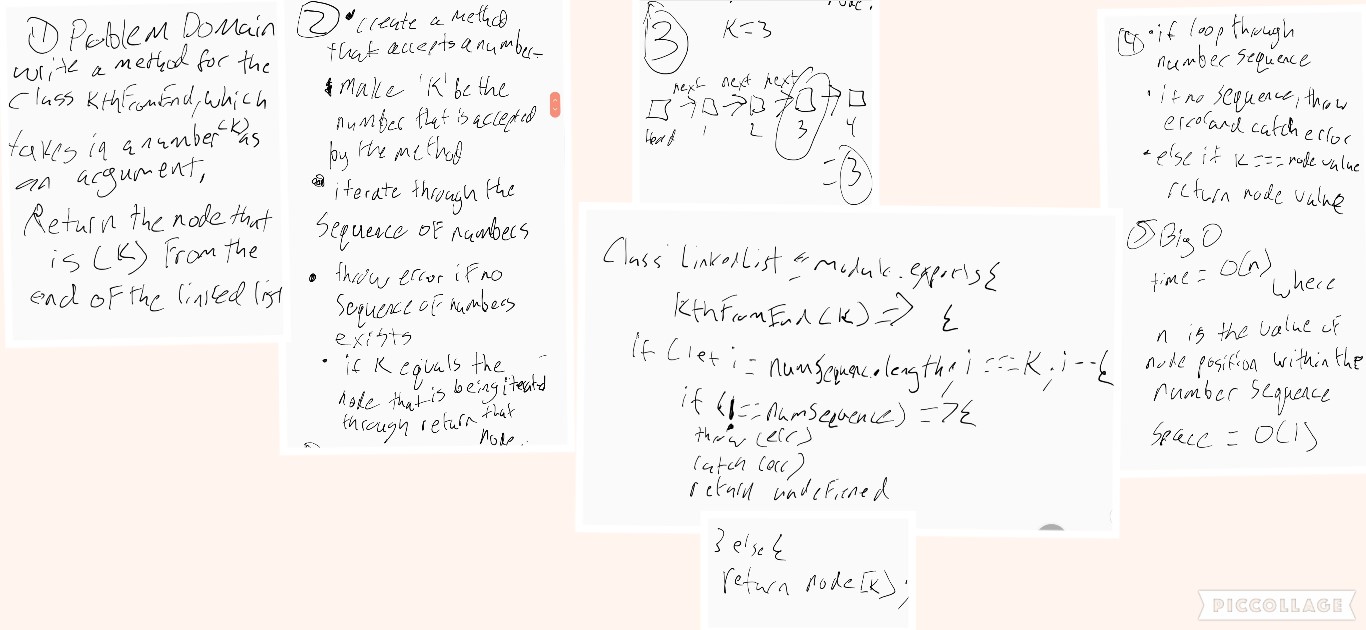 ① Problem Domain
write a method for the
Class KthFromEnd, which
takes in a number (K) as
an argument,
Return the node that
is (K) From the
end of the linked list
② • create a method
that accepts a number
• Make 'K' be the
number that is accepted
by the method
• iterate through the
Sequence of numbers
• throw error if no
sequence of numbers
exists
• if K equals the
node that is being iterated
through return that
node.
③ K=3
next next next
Head 1 2 3 4
= 3
④ • if loop through
number sequence
• if no sequence, throw
error and catch error
• else if K === node value
return node value
⑤ Big O
time = O(n) where
n is the value of
node position within the
number sequence
space = O(1)
Class LinkedList = module.exports {
KthFromEnd (K) => {
if (let i = numSequence.length; i === K; i-- {
if (!== numSequence) => {
throw (err)
catch (err)
return undefined
} else {
return node [K];
PICCOLLAGE